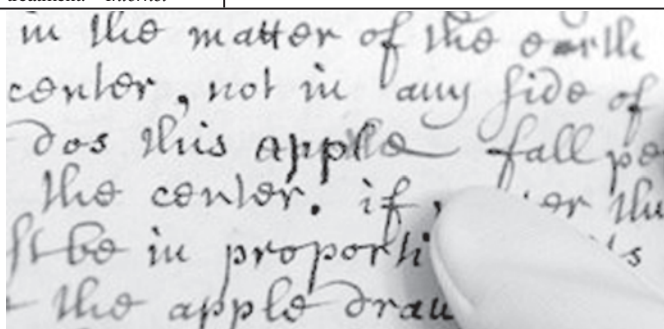 in the matter of the earth
center, not in any side of
dos this apple fall pe
the center. if
st be in proporti
the apple drau